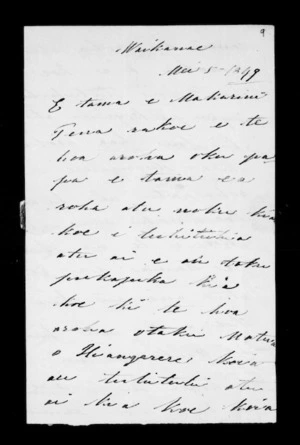 9
Waikanae
Mei 5 - 1849
E tama e Makarini
Tena ra koe e te
hoa aroha o ku pa
pa e tama e a
roha atu noku kia
koe i tuhituhia
atu ai e au toku
pukapuka kia
koe ki te hoa
aroha o taku Matua
o Hiangarere, koia
au tuhituhi atu
ai kia koe koia